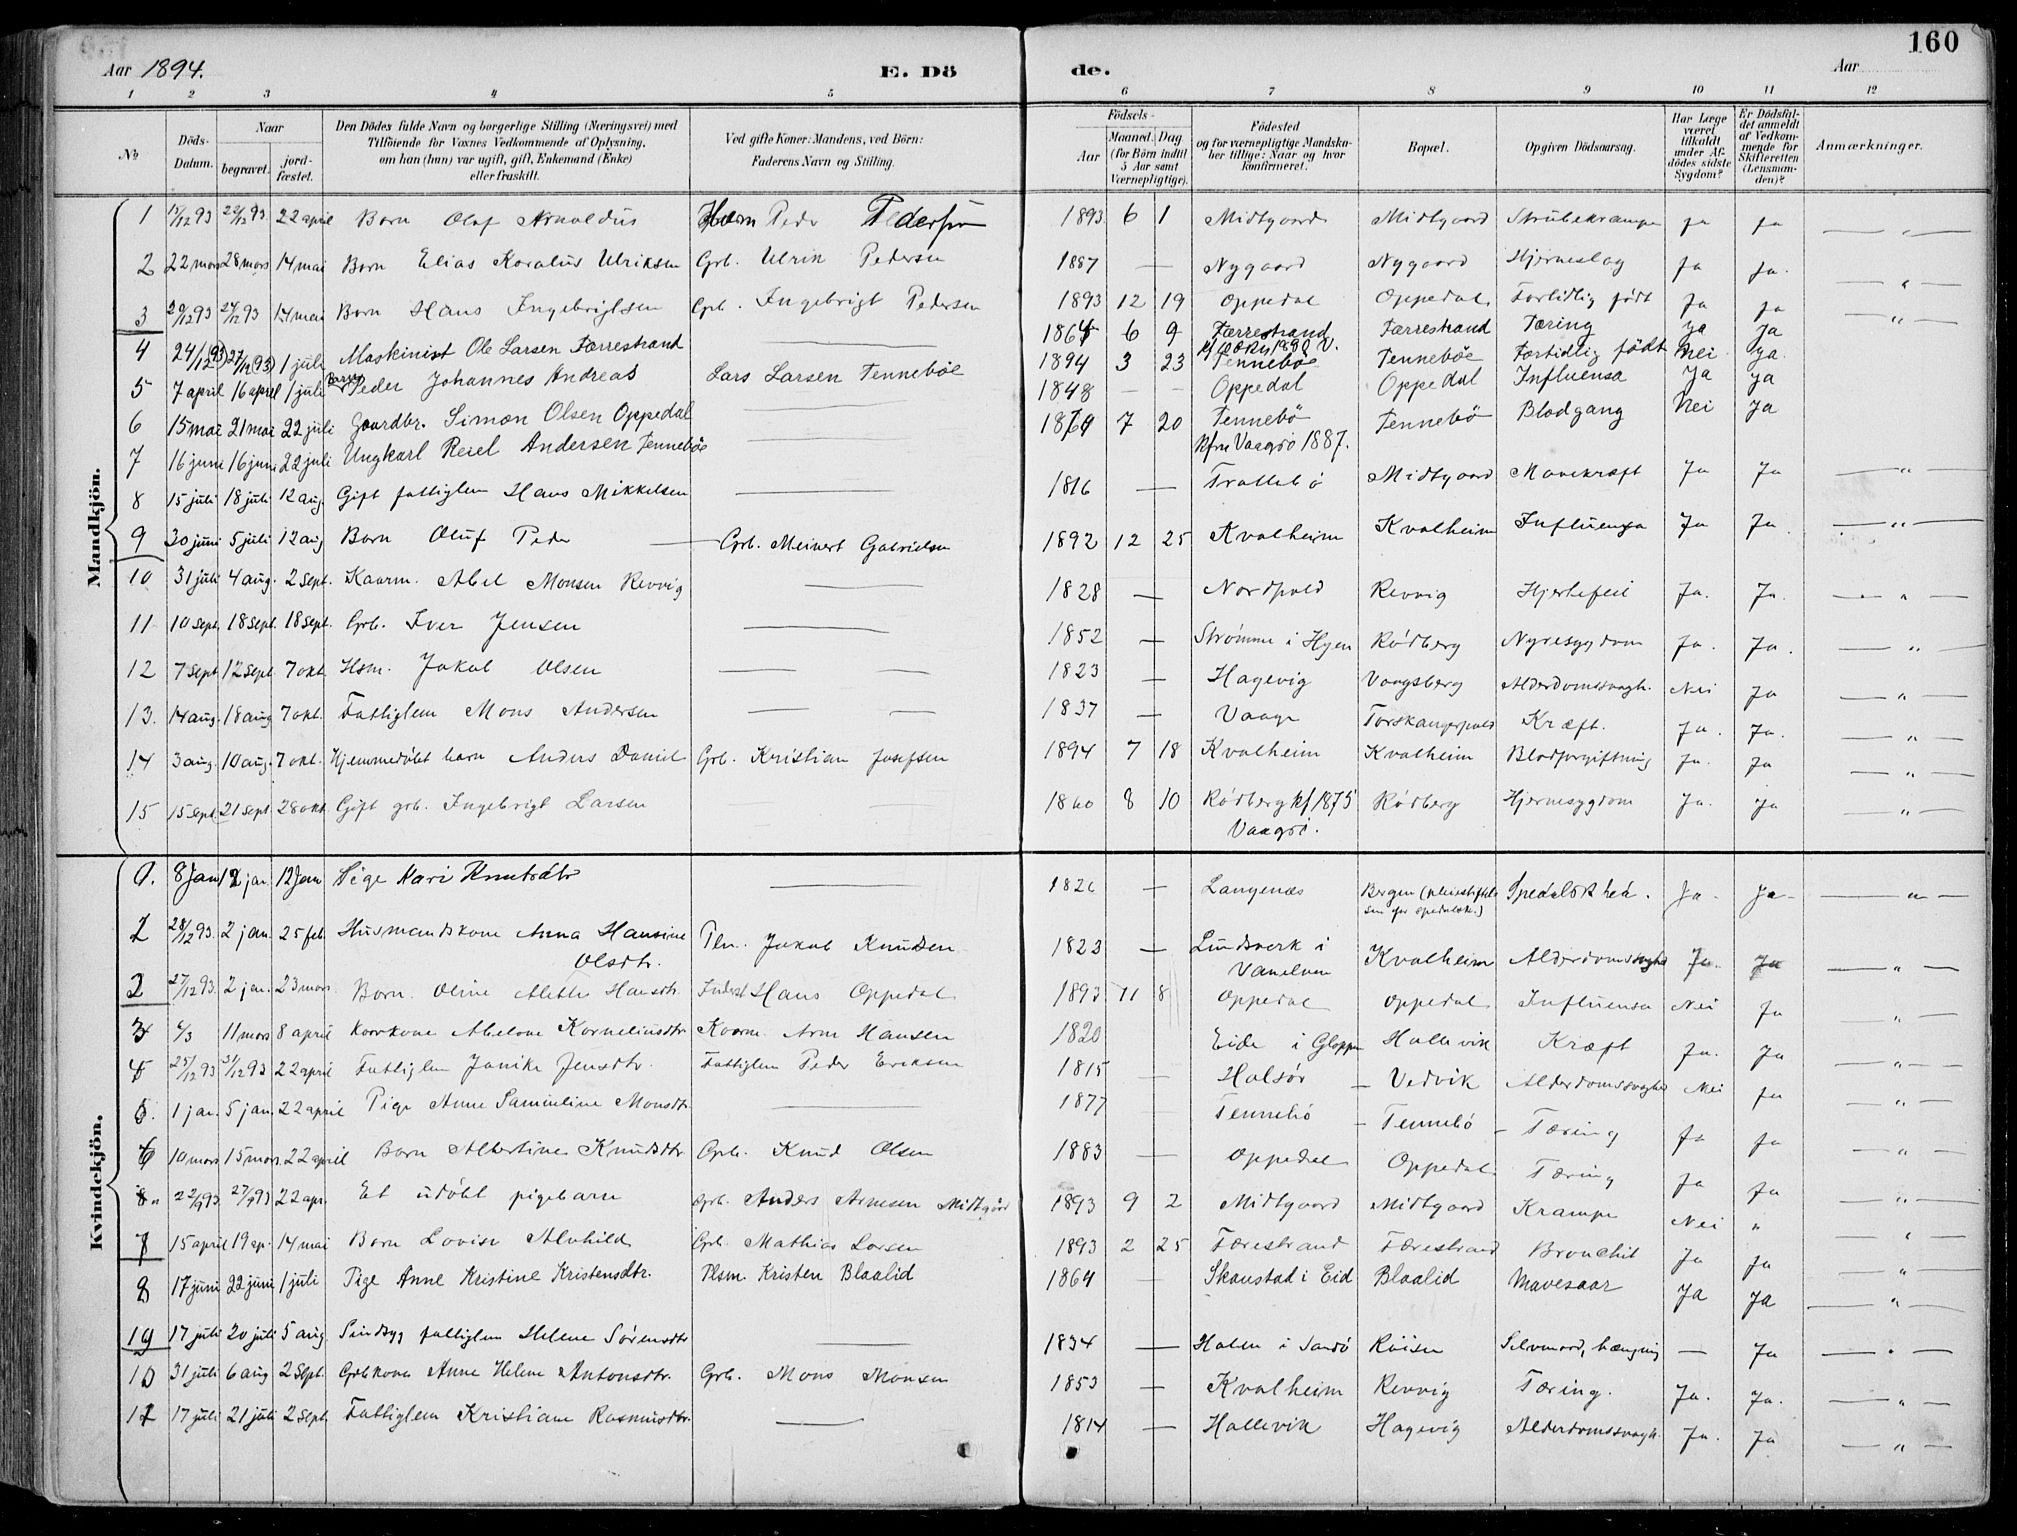 160
Aar 1894.
E. Dö
de.
Aar
1 2 3 4 5 6 7 8 9 10 11 12
№
Döds-Datum.
Naar
begravet.
jord-fæstet.
Den Dödes fulde Navn og borgerlige Stilling (Næringsvei) med
Tilföiende for Voxnes Vedkommende af Oplysning,
om han (hun) var ugift, gift, Enkemand (Enke)
eller fraskilt.
Ved gifte Koner: Mandens, ved Börn:
Faderens Navn og Stilling.
Födsels-
Aar
Maaned. Dag
(for Börn indtil
5 Aar samt
Værnepligtige).
Födested
og for værnepligtige Mandska-
ber tillige: Naar og hvor
konfirmeret.
Bopæl.
Opgiven Dödsaarsag.
Har Læge
været
tilkaldt
under Af-
dödes sidste
Sygdom?
Er Dödsfal-
det anmeldt
af Vedkom-
mende for
Skifteretten
(Lensman-
den)?
Anmærkninger.
Mandkjön.
1 15/12 93 20/12 93. 22 april Barn Olaf Arnoldus Peder Pederssøn 1893 6 1 Midtgaard Midtgaard Strubekrampe ja ja — " —
2 22 mars 28 mars 14 mai Barn Elias Koralius Ulriksen Grb. Ulrik Pedersen 1887 — Nygaard Nygaard Hjerneslag Ja Ja. "
3 20/12 93 24/12 93 14 mai Barn Hans Ingebrigtsen Grb. Ingebrigt Pedersen 1893 12 19 Oppedal Oppedal Fortidlig født Ja Ja — " —
4 24/12 93) 27/12 (93) 1 juli Maskinist Ole Larsen Færrestrand — 1864 6 9 Færrestrand Færrestrand Tæring Ja Ja
5 7 april 16 april 1 juli Barn Peder Johannes Andreas Lars Larsen Tennebøe 1894 3 23 Tennebøe Tennebøe Fortidlig født Nei Ja.
6 15 mai 21 mai 22 juli Gaardbr. Simon Olsen Oppedal — 1848 — — Oppedal Oppedal Influensa Ja Ja
7 16 juni 16 juni 22 juli Ungkarl Reiel Andersen Tennebøe — 7 20 Tennebö Tennebö Blodgang Nei Ja
Kfm Vaagsö 1887.
8 15 juli 18 juli 12 aug. Gift fattiglem Hans Mikkelsen — 1816 — Trollebö Midtgaard Mavekræft Ja Ja — " —
9 30 juni 5 juli 12 aug Barn Oluf Peder — Grb. Meinert Gabrielsen 1892 12 25 Kvalheim Kvalheim Influenza Ja Ja. — " —
10 31 juli 4 aug. 2 sept. Kaarm. Abel Monsen Revvig — 1828 — Nordpold Revvig Hjertefeil Ja. Ja. — " —
11 10 sept. 18 sept. 18 sept. Grb. Iver Jensen — 1852 — Strømme i Hyen Rödberg Nyresygdom Ja. Ja. — " —
12 7 sept 12 sept 7 okt. Hsm. Jakob Olsen — — 1823 — Hagevig Vaagsberg Alderdomssvagh. Nei Ja — " —
13. 14 aug. 18 aug 7 okt. Fattiglem Mons Andersen — — 1837 — Vaage Kræft. Ja. Ja. — " —
14 3 aug. 10 aug. 7 okt. Hjemmedøbt barn Anders Daniel Grb. Kristian Josefsen 1894 7 18 Kvalheim Kvalheim Blodforgiftning Ja. Ja — " —
15 15 sept. 21 sept. 28 okt. Gift grb. Ingebrigt Larsen — 1860 8 10 Rödberg kf 1875 Rödberg Hjernesygdom Ja. Ja — " —
Vaagsö.
Kvindekjön.
1. 8 Jan 12 jan. 12 Jan Pige Kari Knutsdtr — 1826 — Langenæs Bergen (pleiestiftel-
sen for spedalsk.) Spedalskhed. Ja. Ja — " —
2 28/12 93. 2 jan. 25 feb. Husmandskone Anna Hansine Pln. Jakob Knudsen 1823 — i Kvalheim Alderdomssvaghed Ja. Ja — " —
Olsdtr. Vanelven
2 27/12 93. 2 jan. 23 mars Barn. Oline Alethe Hansdtr. Inderst Hans Oppedal 1893 11 8 Oppedal Oppedal Influensa Nei Ja — " —
3 4/3 11 mars 8 april Kaarkone Abelone Korneliusdtr Kaarm. Arne Hansen 1820 Eide i Gloppen Hallevik Kræft Ja. Ja — " —
4 25/12 93 31/12 93 22 april Fattiglem Janike Jensdtr. Fattiglem Peder Eriksen 1815 — Halsör — Vedvik Alderdomssvaghed Nei Ja — " —
5. 1 jan. 5 jan. 22 april Pige Anne Samueline Monsdtr. — 1877 — Tennebö — Tennebö — Tæring Ja Ja — " —
6 10 mars 15 mars. 22 april Barn Albertine Knudsdtr Grb. Knud Olsen 1883 — Oppedal Oppedal Tæring Ja Ja — " —
8. 22/9 93. 27/9 93 22 apr. Et udöbt pigebarn Grb. Anders Arnesen Midtgård 1893 9 2 Midtgaard Midtgaard Krampe Nei " "
7 15 april 19 ap. 14 mai Barn Lovise Alvhild Grb. Mathias Larsen 1893 2 25 Færestrand Færestrand Bronchit Ja Ja — " —
8 17 juni 22 juni 1 juli Pige Anne Kristine Kristensdtr. Plsm. Kristen Blaalid 1864 — i Eid Blaalid Mavesaar Ja Ja — " —
19 17 juli 20 juli 5 aug. Sindsyg fattiglem Helene Sörensdtr — 1834 — Holen i Sandö Röisen Selvmord, hængning — Ja — " —
10 31 juli 6 aug 2 sept. Grbkone Anne Helene Antonsdtr. Grb. Mons Monsen 1853 — Kvalheim Revvig Tæring. Ja. Ja. — " —
11 17 juli 21 juli 2 sept. Fattiglem Kristiane Rasmusdtr. — 1814 — Hallevik Hagevig Alderdomssvagh. Ja. Ja — " —